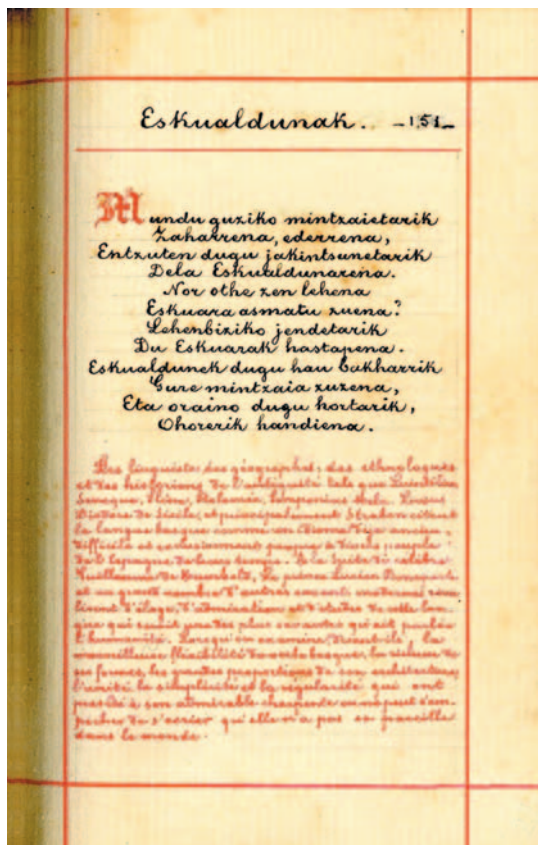 Eskualdunak. -151-
Mundu guziko mintzaietarik
Zaharrena, ederrena,
Entzuten dugu jakintsunetarik
Dela Eskualdunarena.
Nor othe zen lehena
Eskuara asmatu zuena?
Lehenbiziko jendetarik
Du Eskuarak hastapena.
Eskualdunek dugu hau bakharrik
Gure mintzaia zuzena,
Eta oraino dugu hortarik,
Ohorerik handiena.
Des linguistes, des géographes, des ethnologues
et des historiens de l'antiquité tels que Quintilien,
Seneque, Pline, Ptolemée, Pomponius Mela,
Diodore de Sicile, et principalement Strabon citent
la langue basque comme un idiome déja ancien,
difficile et exclusivement propre à
de l'Espagne de leur temps. A la suite du célèbre
Guillaume de Humboldt, le prince Lucien Bonaparte
et un grand nombre d'autres savants modernes
d'éloges, d'admiration et d'études de cette lan-
gue qui serait une des plus savantes qui ait parlée
l'humanité. Lorsqu'on examine, disent-ils, la
merveilleuse flexibilité du verbe basque, la richesse de
ses formes, les grandes proportions de son architecture,
l'unité, la simplicité et la régularité qui ont
présidé à son admirable charpente on ne peut s'em-
pêcher de s'écrier qu'elle n'a pas sa pareille
dans le monde.